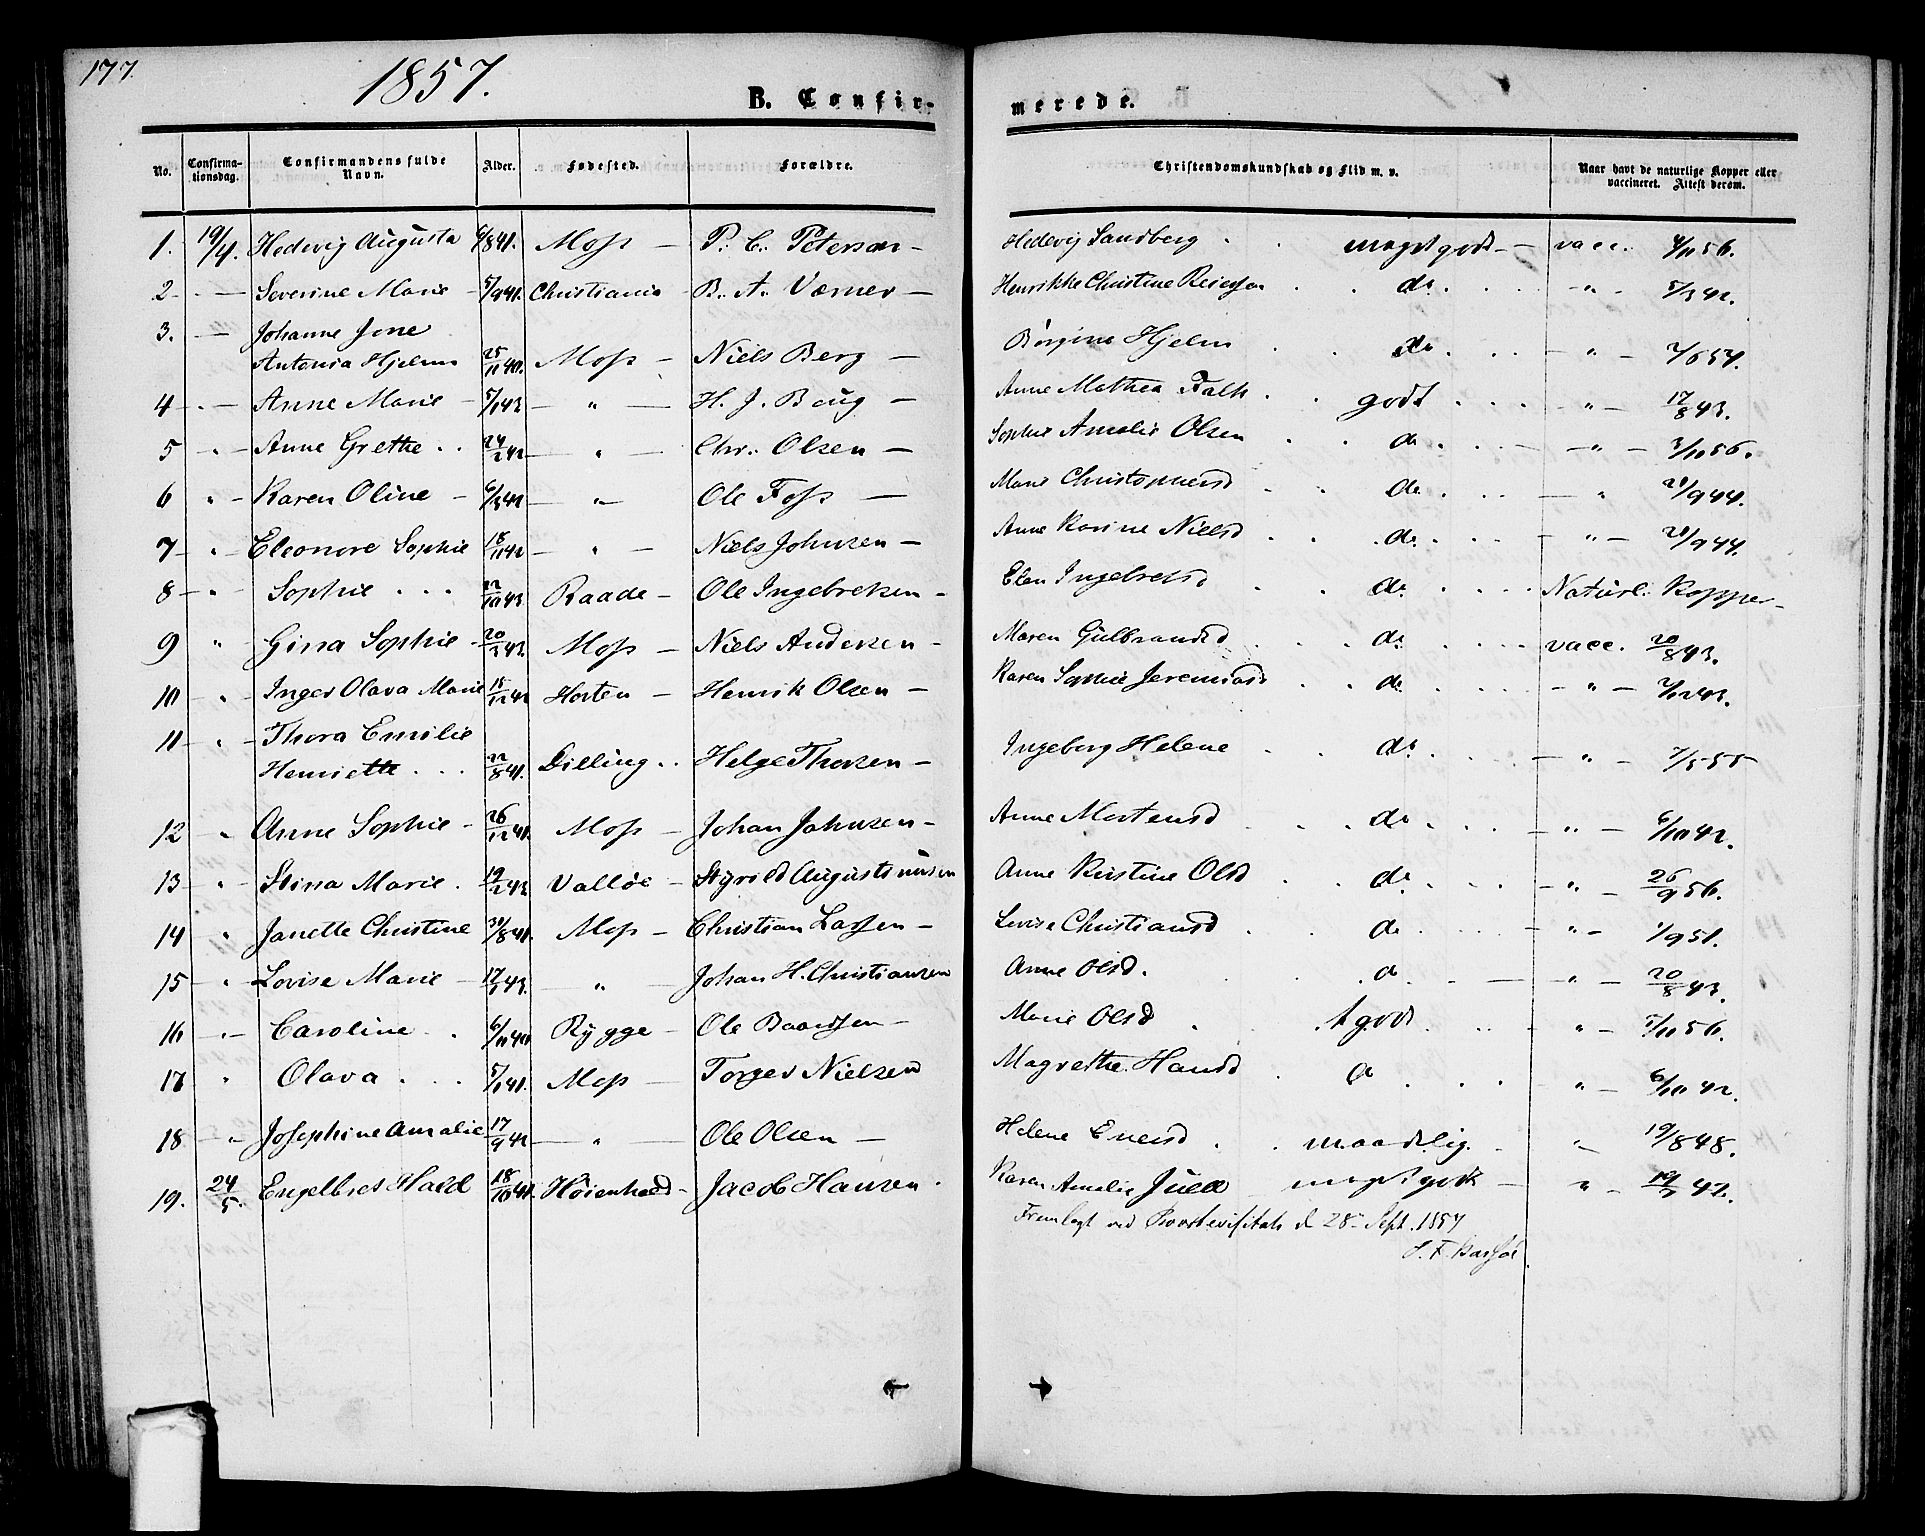 177.
1857.
B. Confir-
merede.
No. Confirma-tionsdag. Confirmandens fulde Navn. Alder. Fødested. Forældre. Christendomskundskab og Flid m. v. Naar havt de naturlige Kopper eller vaccineret. Attest derom.
1. 19/4. Hedevig Augusta 6/8 41. Moss — P. C. Petersen — Hedevig Sandberg meget godt — vacc. 4/11 56.
2 - — Severine Marie - 5/9 41. Christiania - B. A. Værner — Henrikke Christine do " 5/3 42.
3. — Johanne Jene
Antonia Hjelm 25/11 40. Moss — Niels Berg — Børgine Hjelm do — " — 2/6 57.
4 - — Anne Marie - 5/1 43. — " — H. J. Boug — Anne Mathea Falk godt " 17/8 43.
5 - " - Anne Grethe 24/2 42 — " — Chr. Olsen — Sophie Amalie Olsen do — " — 3/10 56.
6 " - Karen Oline - 6/3 42 — " — Ole Foss — Marie Christophersd do — " 21/9 44.
7 - " - Eleonore Sophie 18/11 42 — " — Niels Johnsen — Anne Karine Nielsd do " - 21/9 44.
8 - " - Sophie 22/10 43 Raade - Ole Ingebretsen - Elen Ingebretsd do Naturl. Kopper -
9 " - Gina Sophie - 20/2 43. Moss — Niels Andersen - Maren Gulbrandsd do vacc. 20/8 43.
10 " - Inger Olava Marie 18/12 42 Horten - Henrik Olsen — Karen Sophie Jeremiasd do - " — 2/12 43.
11 - " - Thora Emilie
Henriette 22/8 41. Dilling Helge Thorsen — Ingeborg Helene do — " — 7/5 55
12 - " Anne Sophie - 26/12 41. Moss — Johan Johnsen - Anne Mortensd do - " — 6/10 42.
13 - " - Stina Marie 19/2 43 Valløe - Styrold Augustinusen Anne Kirstine Olsd do - " — 26/9 56.
14 " Janette Christine 31/8 41. Moss — Christian Larsen — Lovise Christiansd do - " - 1/9 51.
15 - " - Lovise Marie - 17/1 43. — " — Johan H. Christiansen Anne Olsd. do — " — 20/8 43.
16 " - Caroline 6/11 40 Rygge - Ole Baardsen — Marie Olsd t godt " — 7/10 56.
17 " Olava 5/1 41. Moss — Torger Nielsen Magrethe Hansd do " — 6/10 42.
18 — " - Josephine Amalie 17/9 42 — " — Ole Olsen — Helene Enersd maadelig. " 19/8 48.
19. 24/5. Engelbret Hald 18/10 41. Høienhald - Jacob Hansen Karen Amalie Juell meget godt — " - 19/7 42.
Fremlagt ved Provstevisitats d 28de Sept. 1857